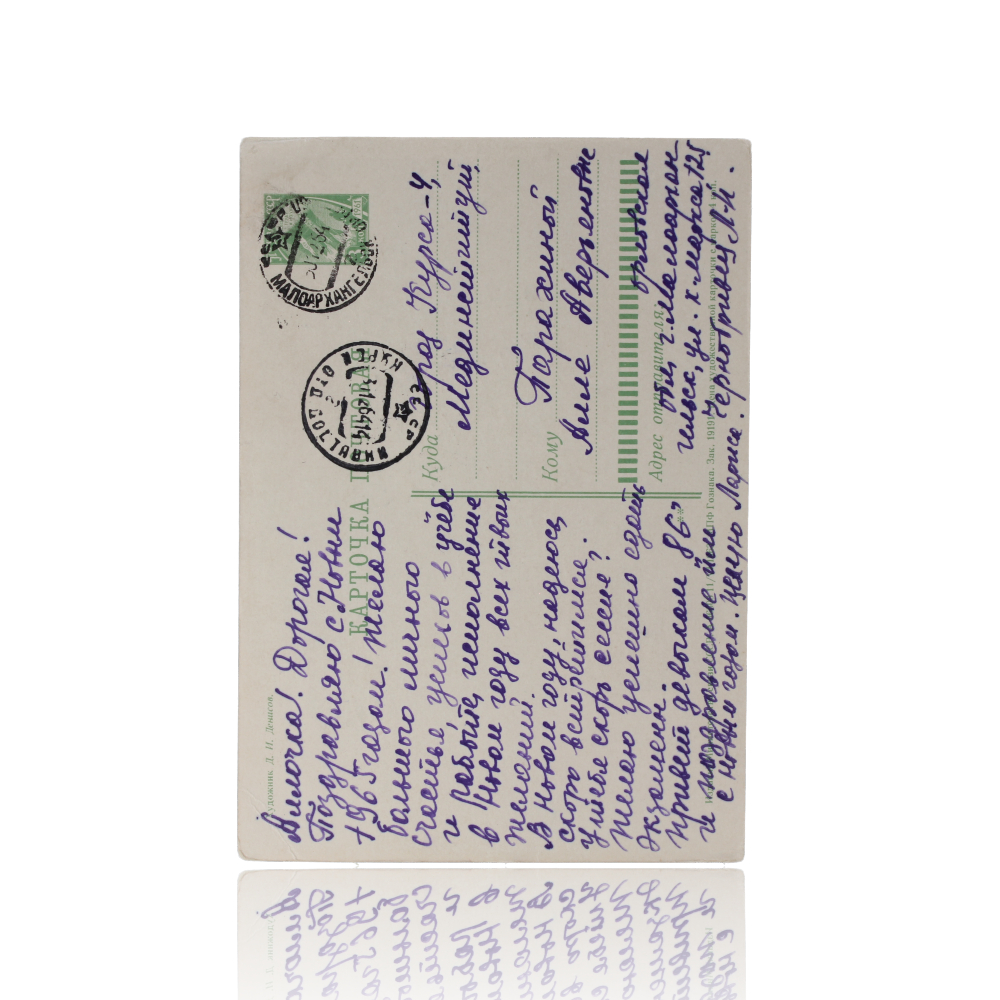 Художник Д. И. Денисов.
КАРТОЧКА ПОЧТОВАЯ
МАЛОАРХАНГЕЛЬСК
Аллочка! Дорогая!
Поздравляю с Новым
1965 годом! Желаю
большого личного
счастья, успехов в учёбе
и работе, исполнение
в Новом году всех твоих
желаний.
В Новом году, надеюсь,
скоро встретимся.
У тебя скоро сессия?
Желаю успешно сдать
экзамены
Привет девчкам 86
и поздравление им
с новым годом. Целую Лариса.
Куда
Курск-4,
Мединститут,
Кому
Парахиной
Алле Аверьяновне
Адрес отправителя
Орловская
обл., г. Малоархан
гельск, ул. К. Маркса 125
Чернотрицкая Л. М.